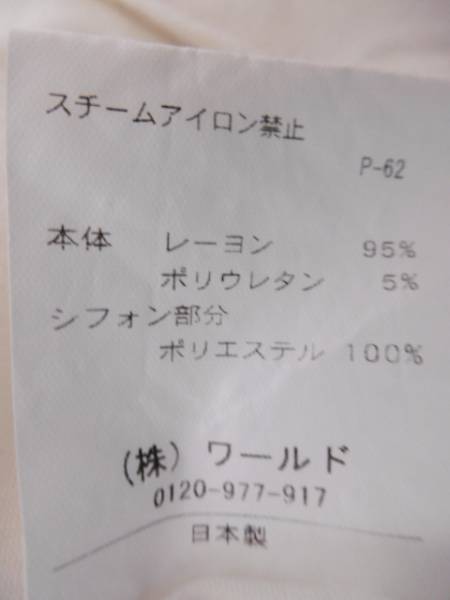 スチームアイロン禁止
P-62
本体 レーヨン 95%
ポリウレタン 5%
シフォン部分
ポリエステル 100%
(株) ワールド
0120-977-917
日本製